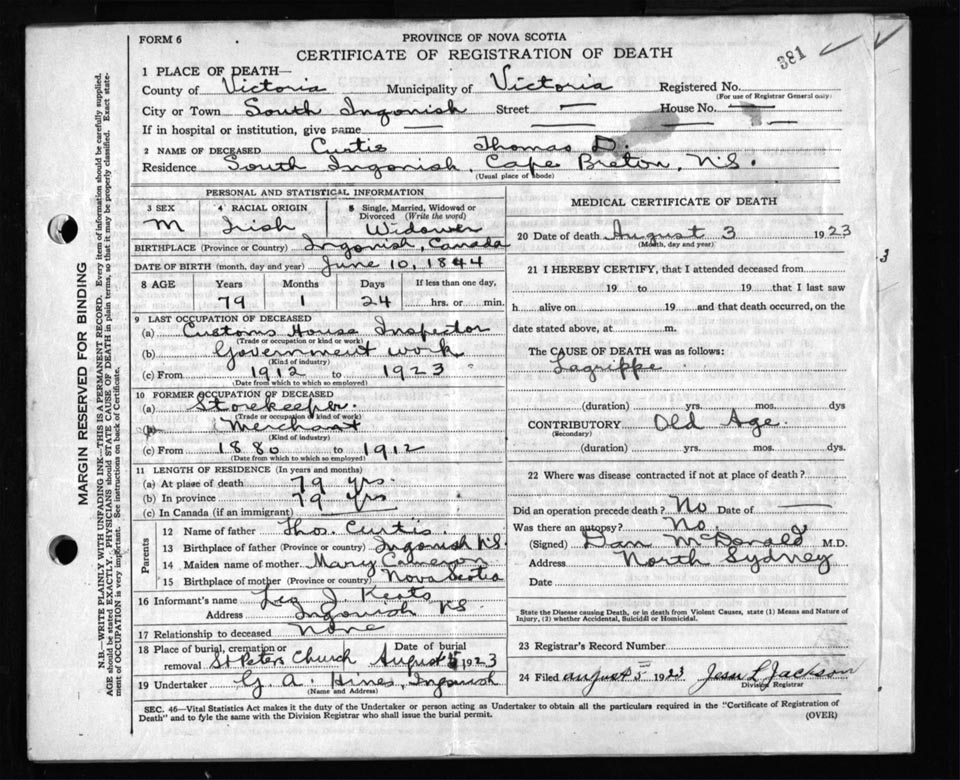 FORM 6
PROVINCE OF NOVA SCOTIA
CERTIFICATE OF REGISTRATION OF DEATH
381
1 PLACE OF DEATH—
County of Victoria Municipality of Victoria Registered No.
(For use of Registrar General only)
City or Town South Ingonish Street — House No. —
If in hospital or institution, give name — — — —
2 NAME OF DECEASED Curtis Thomas D.
Residence South Ingonish, Cape Breton, N.S.
(Usual place of abode)
PERSONAL AND STATISTICAL INFORMATION
3 SEX 4 RACIAL ORIGIN 5 Single, Married, Widowed or Divorced (Write the word)
M Irish Widower
BIRTHPLACE (Province or Country) Ingonish, Canada
DATE OF BIRTH (month, day and year) June 10, 1844
8 AGE Years Months Days If less than one day,
79 1 24 hrs. or min.
9 LAST OCCUPATION OF DECEASED
(a) Customs House Inspector
(Trade or occupation or kind of work)
(b) Government work
(Kind of industry)
(c) From 1912 to 1923
(Date from which to which so employed)
10 FORMER OCCUPATION OF DECEASED
(a) Storekeeper.
(Trade or occupation or kind of work)
(b) Merchant
(Kind of industry)
(c) From 1880 to 1912
(Date from which to which so employed)
11 LENGTH OF RESIDENCE (In years and months)
(a) At place of death 79 yrs.
(b) In province 79 yrs
(c) In Canada (if an immigrant)
Parents
12 Name of father Tho. Curtis.
13 Birthplace of father (Province or country) Ingonish N.S.
14 Maiden name of mother Mary
15 Birthplace of mother (Province or country) Nova Scotia
16 Informant's name J.
Address Ingonish N.S.
17 Relationship to deceased None
18 Place of burial, cremation or removal St Peters Church Date of burial August 5 1923
19 Undertaker G. A. Hines, Ingonish
(Name and Address)
MEDICAL CERTIFICATE OF DEATH
20 Date of death August 3 1923
(Month, day and year)
21 I HEREBY CERTIFY, that I attended deceased from
19 to 19 that I last saw
h alive on 19 and that death occurred, on
date stated above, at m.
The CAUSE OF DEATH was as follows:
Lagrippe
(duration) yrs. mos. dys
CONTRIBUTORY Old Age.
(Secondary)
(duration) yrs. mos. dys.
22 Where was disease contracted if not at place of death?
Did an operation precede death? No Date of —
Was there an autopsy? No.
(Signed) Dan McDonald M.D.
Address North Sydney
Date
State the Disease causing Death, or in death from Violent Causes, state (1) Means and Nature of
Injury, (2) whether Accidental, Suicidal or Homicidal.
23 Registrar's Record Number
24 Filed August 5 1923 L Jackson
Division Registrar
SEC. 46—Vital Statistics Act makes it the duty of the Undertaker or person acting as Undertaker to obtain all the particulars required in the "Certificate of Registration of
Death" and to fyle the same with the Division Registrar who shall issue the burial permit. (OVER)
MARGIN RESERVED FOR BINDING
N.B.—WRITE PLAINLY WITH UNFADING INK—THIS IS A PERMANENT RECORD. Every item of information should be carefully supplied.
AGE should be stated EXACTLY. PHYSICIANS should STATE CAUSE OF DEATH in plain terms, so that it may be properly classified. Exact state-
ment of OCCUPATION is very important. See instructions on back of Certificate.
3